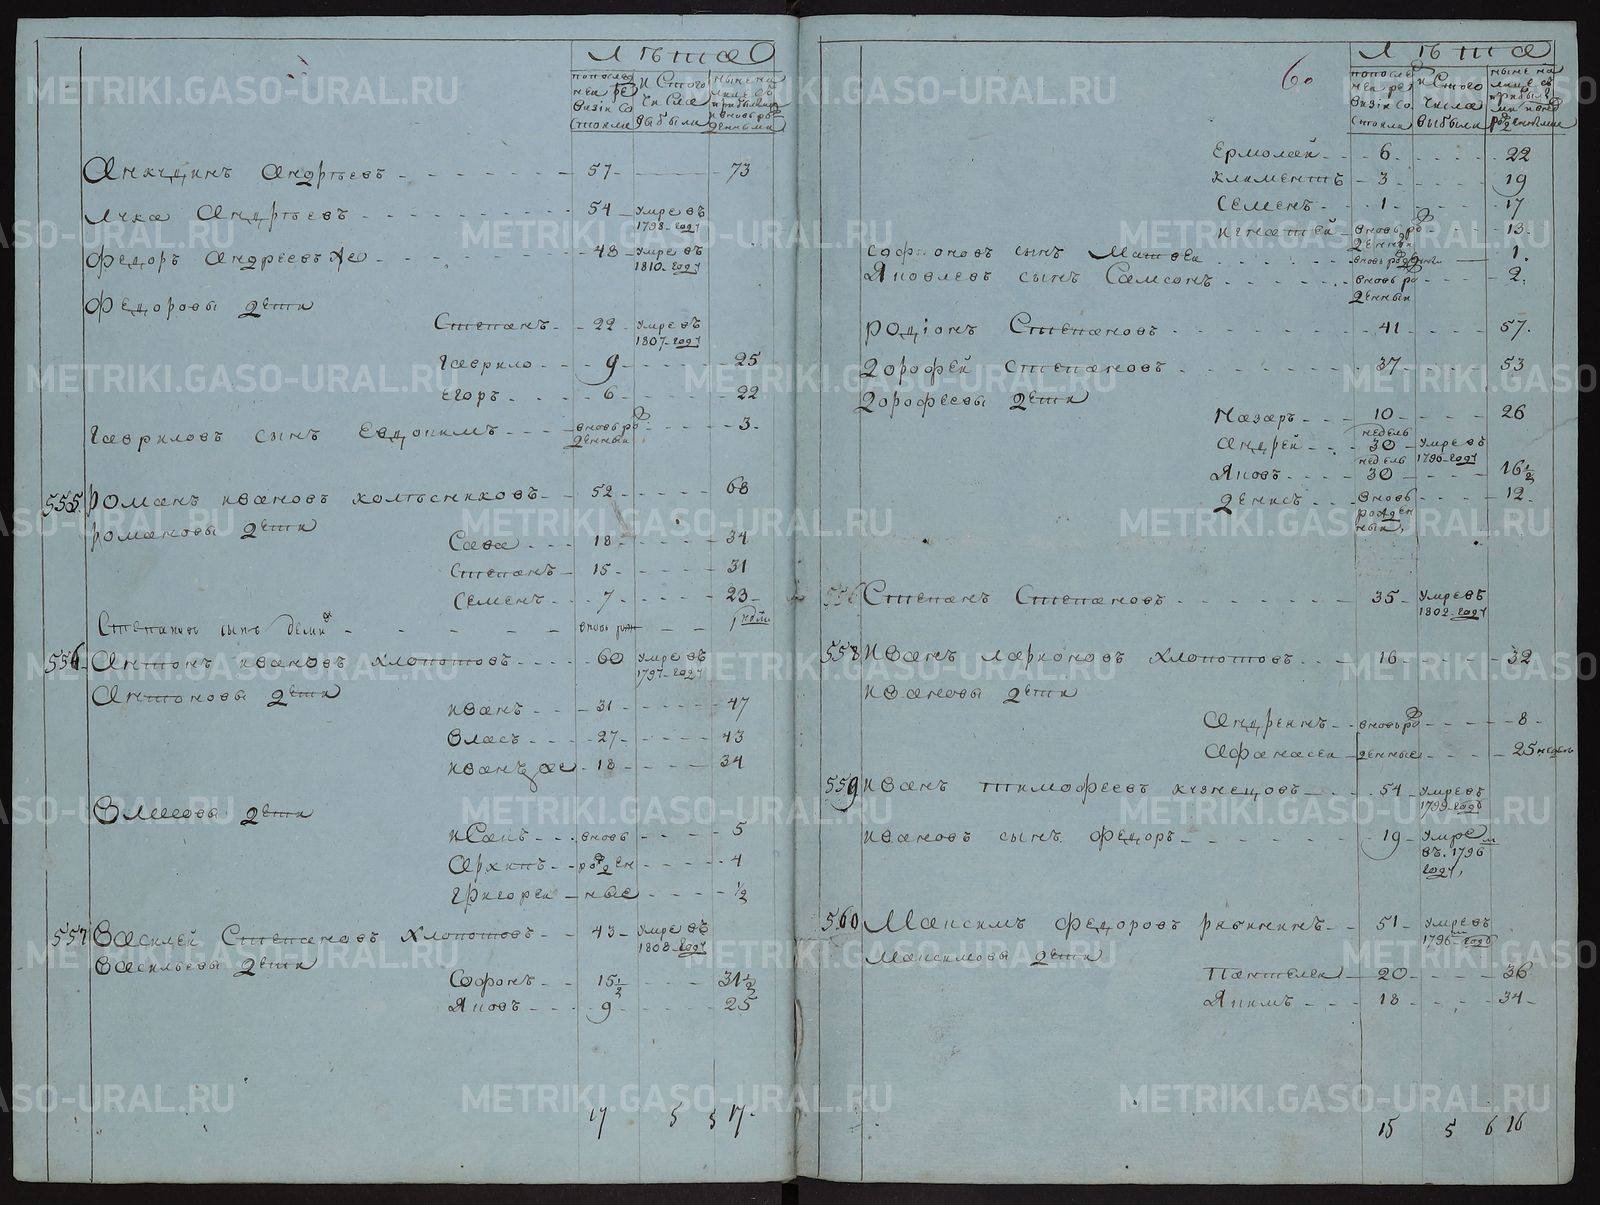 Лѣта
по послѣд
ней ре
визіи со
стояли
и Стого
числа
выбыли
ныне на
лице съ
прибылыми
и вновь ро
жденными
Анкудинъ Андрѣевъ 57 73
Лука Андрѣевъ 54 умре въ
1798 году
Федоръ Андреевъ же 48 умре въ
1810 году
Федоровы дети
Степанъ 22 умре въ
1807 году
Гаврило 9 25
Егоръ 6 22
Гавриловъ сынъ Евдокимъ вновь ро
жденный 3
555 Романъ Ивановъ Колѣсниковъ 52 68
Романовы дети
Сава 18 34
Степанъ 15 31
Семенъ 7 23
Степановъ сынъ вновь рож 1
556 Антонъ Ивановъ Хлопотовъ 60 умре въ
1797 году
Антоновы дети
Иванъ 31 47
Власъ 27 43
Иванъ же 18 34
Власовы дети
Исакъ вновь 5
Архипъ рожден 4
Григорей ные ½
557 Василей Степановъ Хлопотовъ 43 умре въ
1808 году
Васильевы дети
Софонъ 15½ 31½
Яковъ 9 25
17 5 5 17
60
Лѣта
по послѣд
ней ре
визіи со
стояли
и Стого
числа
выбыли
ныне на
лице съ
прибылы
ми и внов
рожденными
Ермолай 6 22
Климентъ 3 19
Семенъ 1 17
Игнатей вновь ро
жденный 13
Софроновъ сынъ Матвей вновь рожденный 1
Яковлевъ сынъ Самсонъ вновь ро
жденный 2
Родіонъ Степановъ 41 57
Дорофей Степановъ 37 53
Дорофеевы дети
Назаръ 10 26
Андрей недель
30 умре въ
1796 году
Яковъ недель
30 16½
Денисъ вновь
рожден
ный 12
Степанъ Степановъ 35 умре въ
1802 году
558 Иванъ Ларионовъ Хлопотовъ 16 32
Ивановы дети
Андреянъ вновь ро 8
Афанасей жденные 25 недель
559 Иванъ Тимофеевъ Кузнецовъ 54 умре въ
1799 году
Ивановъ сынъ Федоръ 19 умре
въ 1796
году
560 Максимъ Федоровъ Рябининъ 51 умре въ
1796 году
Максимовы дети
Пантелей 20 36
Якимъ 18 34
15 5 6 16
METRIKI.GASO-URAL.RU